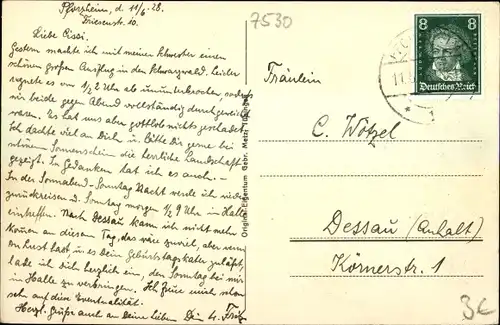 Pforzheim, d. 11/6. 28.
Friesenstr. 10.
Liebe Cissi.
Gestern machte ich mit meiner Schwester einen
schönen großen Ausflug in den Schwarzwald. Leider
regnete es von 1/2 2 Uhr ab ununterbrochen, sodass
wir beide gegen Abend vollständig durchgeweicht
waren. Es hat uns aber gottlob nichts geschadet.
Ich dachte viel an Dich u. hätte Dir gerne bei
schönem Sonnenschein die herrliche Landschaft
gezeigt. In Gedanken hat ich es auch.
In der Sonnabend-Sonntag Nacht werde ich wieder
zurückreisen u. Sonntag morgen 1/2 9 Uhr in Halle
eintreffen. Nach Dessau kann ich nicht mehr
kommen an diesem Tag, das wäre zuviel, aber wenn
Du Lust hast, u. es Dein Geburtstagskater zuläßt,
lade ich Dich herzlich ein, den Sonntag bei mir
in Halle zu verbringen. Ich freue mich schon
sehr auf diese Eventualität.
Herzl. Grüße auch an Deine Lieben Dein Fritz
7530
Original-Eigentum Gebr. Metz, Tübingen
8 8
Deutsches Reich
11.6.
Fräulein
C. Wötzel
Dessau (Anhalt)
Körnerstr. 1
3€